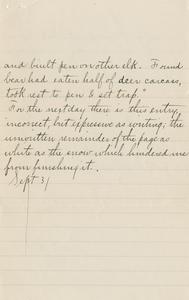 and built pen on other elk. Found
bear had eaten half of deer carcass,
took rest to pen & set trap."
For the next day there is this entry,
incorrect, but expressive as writing; the
unwritten remainder of the page as
white as the snow which hindered me
from finishing it.
Sept 31